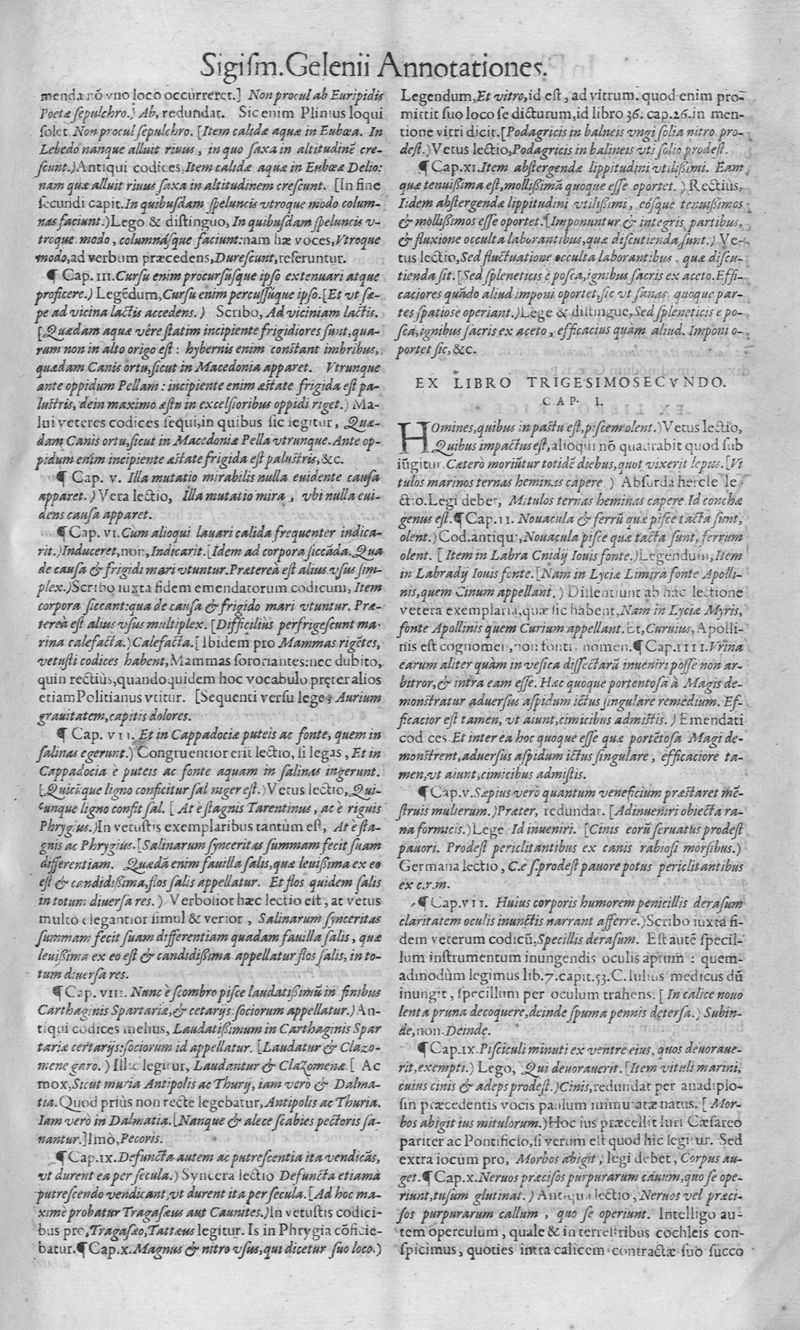 Sigiſm.Gelenii Annotationes.
menda nõ vno loco occurreret.] Non procul ab Euripidis
Poetæ ſepulchro.) Ab, redundat. Sic enim Plinius loqui
ſolet Non procul ſepulchro. [Item calidæ aquæ in Eubœa. In
Lebedo nanque alluit riuus, in quo ſaxa in altitudinẽ cre-
ſcunt.) Antiqui codices, Item calidæ aquæ in Eubœæ Delio:
nam quæ alluit riuus ſaxa in altitudinem creſcunt. [In fine
ſecundi capit. In quibuſdam ſpeluncis vtroque modo colum-
nas faciunt.) Lego & diſtinguo, In quibuſdam ſpeluncis v-
troque modo, columnáſque faciunt: nam hæ voces, Vtroque
modo, ad verbum præcedens, Dureſcunt, referuntur.
¶ Cap. III. Curſu enim procurſúſque ipſo extenuari atque
proficere.) Legẽdum, Curſu enim percuſſúque ipſo. [Et vt ſæ-
pe ad vicina lactis accedens.) Scribo, Ad viciniam lactis.
[Quædam aquæ vêre ſtatim incipiente frigidiores ſunt, qua-
rum non in alto origo eſt: hybernis enim conſtant imbribus,
quædam Canis ortu, ſicut in Macedonia apparet. Vtrunque
ante oppidum Pellam: incipiente enim æſtate frigida eſt pa-
luſtris, dein maximo æſtu in excelſioribus oppidi riget.) Ma-
lui veteres codices ſequi, in quibus ſic legitur, Quæ-
dam Canis ortu, ſicut in Macedoniæ Pella vtrunque. Ante op-
pidum enim incipiente æſtate frigida eſt paluſtris, &c.
¶ Cap. V. Illa mutatio mirabilis nulla euidente cauſa
apparet.) Vera lectio, Illa mutatio mira, vbi nulla eui-
dens cauſa apparet.
¶ Cap. VI. Cum alioqui lauari calida frequenter indica-
rit.) Induceret, non, Indicarit. [Idem ad corpora ſiccãda. Qua
de cauſa & frigidi mari vtuntur. Præterea eſt alius vſus ſim-
plex.) Scribo iuxta fidem emendatorum codicum, Item
corpora ſiccant: qua de cauſa & frigido mari vtuntur. Præ-
terea eſt alius vſus multiplex. [Difficilius perfrigeſcunt ma-
rina calefacta.) Calefacti. [Ibidem pro Mammas rigẽtes,
vetuſti codices habent, Mammas ſororiantes: nec dubito,
quin rectiùs, quandoquidem hoc vocabulo pręter alios
etiam Politianus vtitur. [Sequenti verſu lege, Aurium
grauitatem, capitis dolores.
¶ Cap. VII. Et in Cappadociæ puteis ac fonte, quem in
ſalinas egerunt.) Congruentior erit lectio, ſi legas, Et in
Cappadocia è puteis ac fonte aquam in ſalinas ingerunt.
[Quicũque ligno conficitur ſal niger eſt.) Vetus lectio, Qui-
cunque ligno confit ſal. [At è ſtagnis Tarentinus, ac è riguis
Phrygius.) In vetuſtis exemplaribus tantum eſt, At è ſta-
gnis ac Phrygius. [Salinarum ſynceritas ſummam fecit ſuam
differentiam. Quædã enim fauilla ſalis, quæ leuiſſima ex eo
eſt & candidiſſima, flos ſalis appellatur. Et flos quidem ſalis
in totum diuerſa res.) Verboſior hæc lectio eſt, at vetus
multò elegantior ſimul & verior, Salinarum ſynceritas
ſummam fecit ſuam differentiam quadam fauilla ſalis, quæ
leuiſſima ex eo eſt & candidiſſima appellatur flos ſalis, in to-
tum diuerſa res.
¶ Cap. VIII. Nunc è ſcombro piſce laudatiſſimũ in finibus
Carthaginis Spartariæ, & cetarijs: ſociorum appellatur.) An-
tiqui codices melius, Laudatiſſimum in Carthaginis Spar
tariæ certarijs: ſociorum id appellatur. [Laudatur & Clazo-
mene garo.) Illic legitur, Laudantur & Clazomenæ. [Ac
mox, Sicut muria Antipolis ac Thurij, iam verò & Dalma-
tia. Quod priùs non recte legebatur, Antipolis ac Thuria.
Iam verò in Dalmatia. [Nanque & alece ſcabies pectoris ſa-
nantur.] Imò, Pecoris.
¶ Cap. IX. Defuncta autem ac putreſcentia ita vendicãs,
vt durent ea per ſecula.) Syncera lectio Defuncta etiamà
putreſcendo vendicant, vt durent ita per ſecula. [Ad hoc ma-
ximè probatur Tragaſæus aut Caunites.) In vetuſtis codici-
bus pro, Tragaſæo, Tattæus legitur. Is in Phrygia cõficie-
batur. ¶ Cap. X. Magnus & nitro vſus, qui dicetur ſuo loco.)
Legendum, Et vitro, id eſt, ad vitrum. quod enim pro-
mittit ſuo loco ſe dicturum, id libro 36. cap. 26. in men-
tione vitri dicit. [Podagricis in balneis vngi ſolia nitro pro-
deſt.) Vetus lectio, Podagricis in balneis vti ſolio prodeſt.
¶ Cap. XI. Item abſtergendæ lippitudini vtiliſſimi. Eam
quæ tenuiſſima eſt, molliſſimã quoque eſſe oportet.) Rectius,
Iidem abſtergendæ lippitudini vtiliſſimi, eóſque tenuiſſimos
& molliſſimos eſſe oportet. [Imponuntur & integris partibus,
& fluxione occulta laborantibus, quæ diſcutienda ſunt.) Ve-
tus lectio, Sed fluctuatione occulta laborantibus. quæ diſcu-
tienda ſit. [Sed ſpleneticis è poſca, ignibus ſacris ex aceto. Effi-
caciores quãdo aliud imponi oportet, ſic vt ſanas quoque par-
tes ſpatiose operiant.) Lege & diſtingue, Sed ſpleneticis e po-
ſca, ignibus ſacris ex aceto, efficacius quàm aliud. Imponi o-
portet ſic, &c.
EX LIBRO TRIGESIMOSECVNDO.
CAP. I.
HOmines, quibus in paſtu eſt, piſcem olent.) Vetus lectio,
Quibus impactus eſt, alioqui nõ quadrabit quod ſub
iũgitur. Cæterò moriũtur totidẽ diebus, quot vixerit lepus. [Vi
tulos marinos ternas heminas capere.) Abſurda hercle le-
ctio. Legi debet, Mitulos ternas heminas capere Id conchæ
genus eſt. ¶ Cap. II. Nouacula & ferrũ quæ piſce tacta ſunt,
olent.) Cod. antiqui, Nouacula piſce quæ tacta ſunt, ferrum
olent. [Item in Labra Cnidij Iouis fonte.) Legendum, Item
in Labradij Iouis fonte. [Nam in Lycia Limira fonte Apolli-
nis, quem Cinum appellant.) Diſſentiunt ab hac lectione
vetera exemplaria, quæ ſic habent, Nam in Lyciæ Myris,
fonte Apollinis quem Curium appellant. Et, Curuius, Apolli-
nis eſt cognomen, non fonti. nomen. ¶ Cap. IIII. Vrina
earum aliter quàm in veſica diſſectarũ inueniri poſſe non ar-
bitror, & intra eam eſſe. Hæc quoque portentoſa à Magis de-
monſtratur aduerſus aſpidum ictus ſingulare remedium. Ef-
ficacior eſt tamen, vt aiunt, cimicibus admiſtis.) Emendati
cod ces Et inter ea hoc quoque eſſe quæ portẽtoſa Magi de-
monſtrent, aduerſus aſpidum ictus ſingulare, efficaciore ta-
men, vt aiunt, cimicibus admiſtis.
¶ Cap. V. Sæpius verò quantum veneficium præſtaret mẽ-
ſtruis mulierum.) Præter, redundat. [Adinueniri obiecta ra-
na formicis.) Lege Id inueniri. [Cinis eorũ ſeruatus prodeſt
pauori. Prodeſt periclitantibus ex canis rabioſi morſibus.)
Germana lectio, C.e ſ. prodeſt pauore potus periclitantibus
ex c.r.m.
¶ Cap. VII. Huius corporis humorem penicillis deraſum
claritatem oculis inunctis narrant afferre.) Scribo iuxta fi-
dem veterum codicũ, Specillis deraſum. Eſt autẽ ſpecil-
lum inſtrumentum inungendis oculis aptum: quem-
admodùm legimus lib. 7. capit. 53. C. Iulius medicus dũ
inungit, ſpecillum per oculum trahens. [In calice nouo
lenta pruna decoquere, deinde ſpuma pennis dęterſa.) Subin-
de, non Deinde.
¶ Cap. IX. Piſciculi minuti ex ventre eius, quos deuoraue-
rit, exempti.) Lego, Qui deuorauerit. [Item vituli marini,
cuius cinis & adeps prodeſt.) Cinis, redundat per anadiplo-
ſin præcedentis vocis paulum immutatæ natus. [Mor-
bos abigit ius mitulorum.) Hoc ius præcellit Iuri Cæſareo
pariter ac Pontificio, ſi verum eſt quod hic legitur. Sed
extra iocum pro, Morbos abigit, legi debet, Corpus au-
get. ¶ Cap. X. Neruos præciſos purpurarum cauum, quo ſe ope-
riunt, tuſum glutinat.) Antiqua lectio, Neruos vel præci-
ſos purpurarum callum, quo ſe operiunt. Intelligo au-
tem operculum, quale & in terreſtribus cochleis con-
ſpicimus, quoties intra calicem contractæ ſuo ſucco